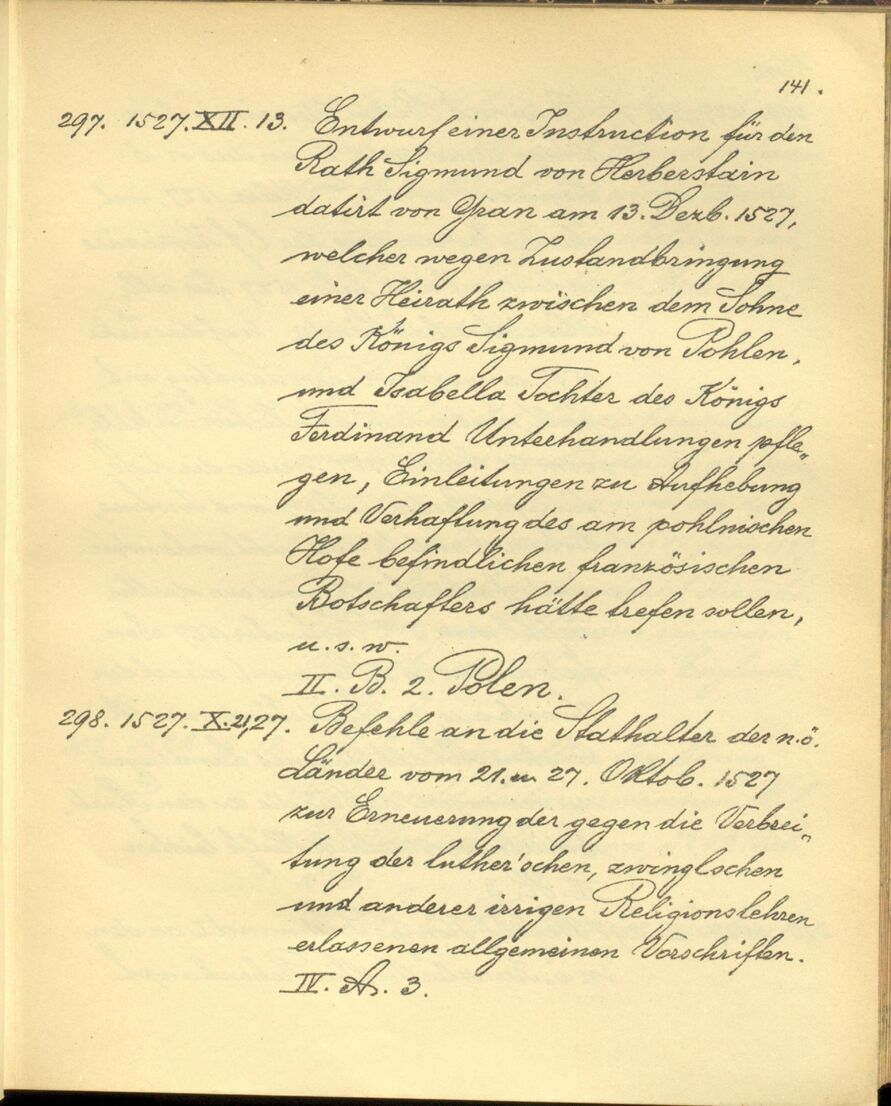 141.
297. 1527. XII. 13. Entwurf einer Instruction für den
Rath Sigmund von Herberstain
datirt von Gran am 13. Dezb. 1527,
welcher wegen Zustandbringung
einer Heirath zwischen dem Sohne
des Königs Sigmund von Pohlen,
und Isabella Tochter des Königs
Ferdinand Unterhandlungen pfle„
gen, Einleitungen zu Aufhebung
und Verhaftung des am pohlnischen
Hofe befindlichen französischen
Botschafters hätte trefen sollen,
u. s. w.
II. B. 2. Polen.
298. 1527. X. 21,27. Befehle an die Stathalter der n.ö.
Länder vom 21. u 27. Oktob. 1527
zur Erneuerung der gegen die Verbrei„
tung der luther'schen, zwinglschen
und anderer irrigen Religionslehren
erlassenen allgemeinen Vorschriften.
IV. A. 3.